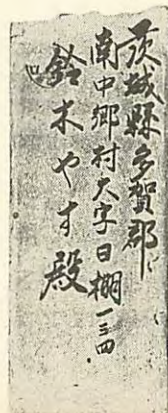 茨城縣多賀郡
南中郷村大字日棚一三四
鈴木やす殿